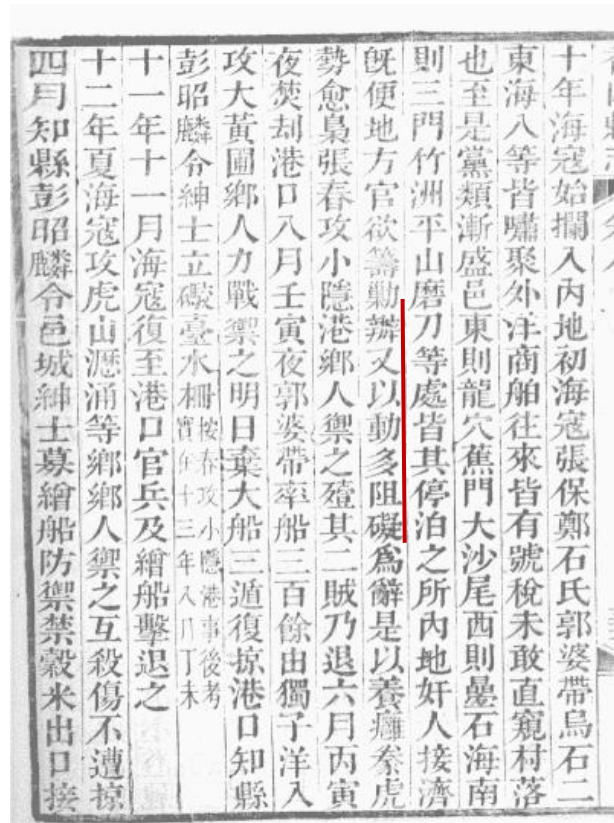 十年海寇始攔入內地初海寇張保鄭石氏郭婆帶烏石二
東海八等皆嘯聚外洋商舶往來皆有號稅未敢直窺村落
也至是黨類漸盛邑東則龍穴蕉門大沙尾西則壘石海南
則三門竹洲平山磨刀等處皆其停泊之所內地奸人接濟
旣便地方官欲籌勦辦又以動多阻礙爲辭是以養癰豢虎
勢愈梟張春攻小隱港鄉人禦之殪其二賊乃退六月丙寅
夜焚刦港口八月壬寅夜郭婆帶率船三百餘由獨子洋入
攻大黃圃鄉人力戰禦之明日棄大船三遁復掠港口知縣
彭昭麟令紳士立礮臺水柵按春攻小隱港事後考實在十三年八月丁未
十一年十一月海寇復至港口官兵及繒船擊退之
十二年夏海寇攻虎山瀝涌等鄉鄉人禦之互殺傷不遭掠
四月知縣彭昭麟令邑城紳士募繒船防禦禁穀米出口接